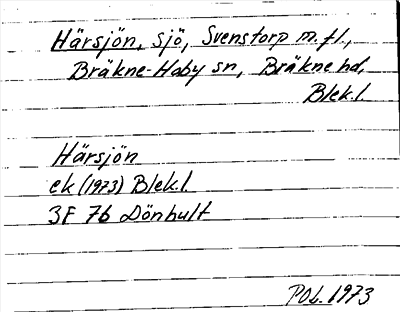 Härsjön, sjö, Svenstorp m.fl.,
Bräkne-Hoby sn, Bräkne hd,
Blek.l.
Härsjön
ek (1973) Blek.l.
3F 7b Dönhult
POL. 1973